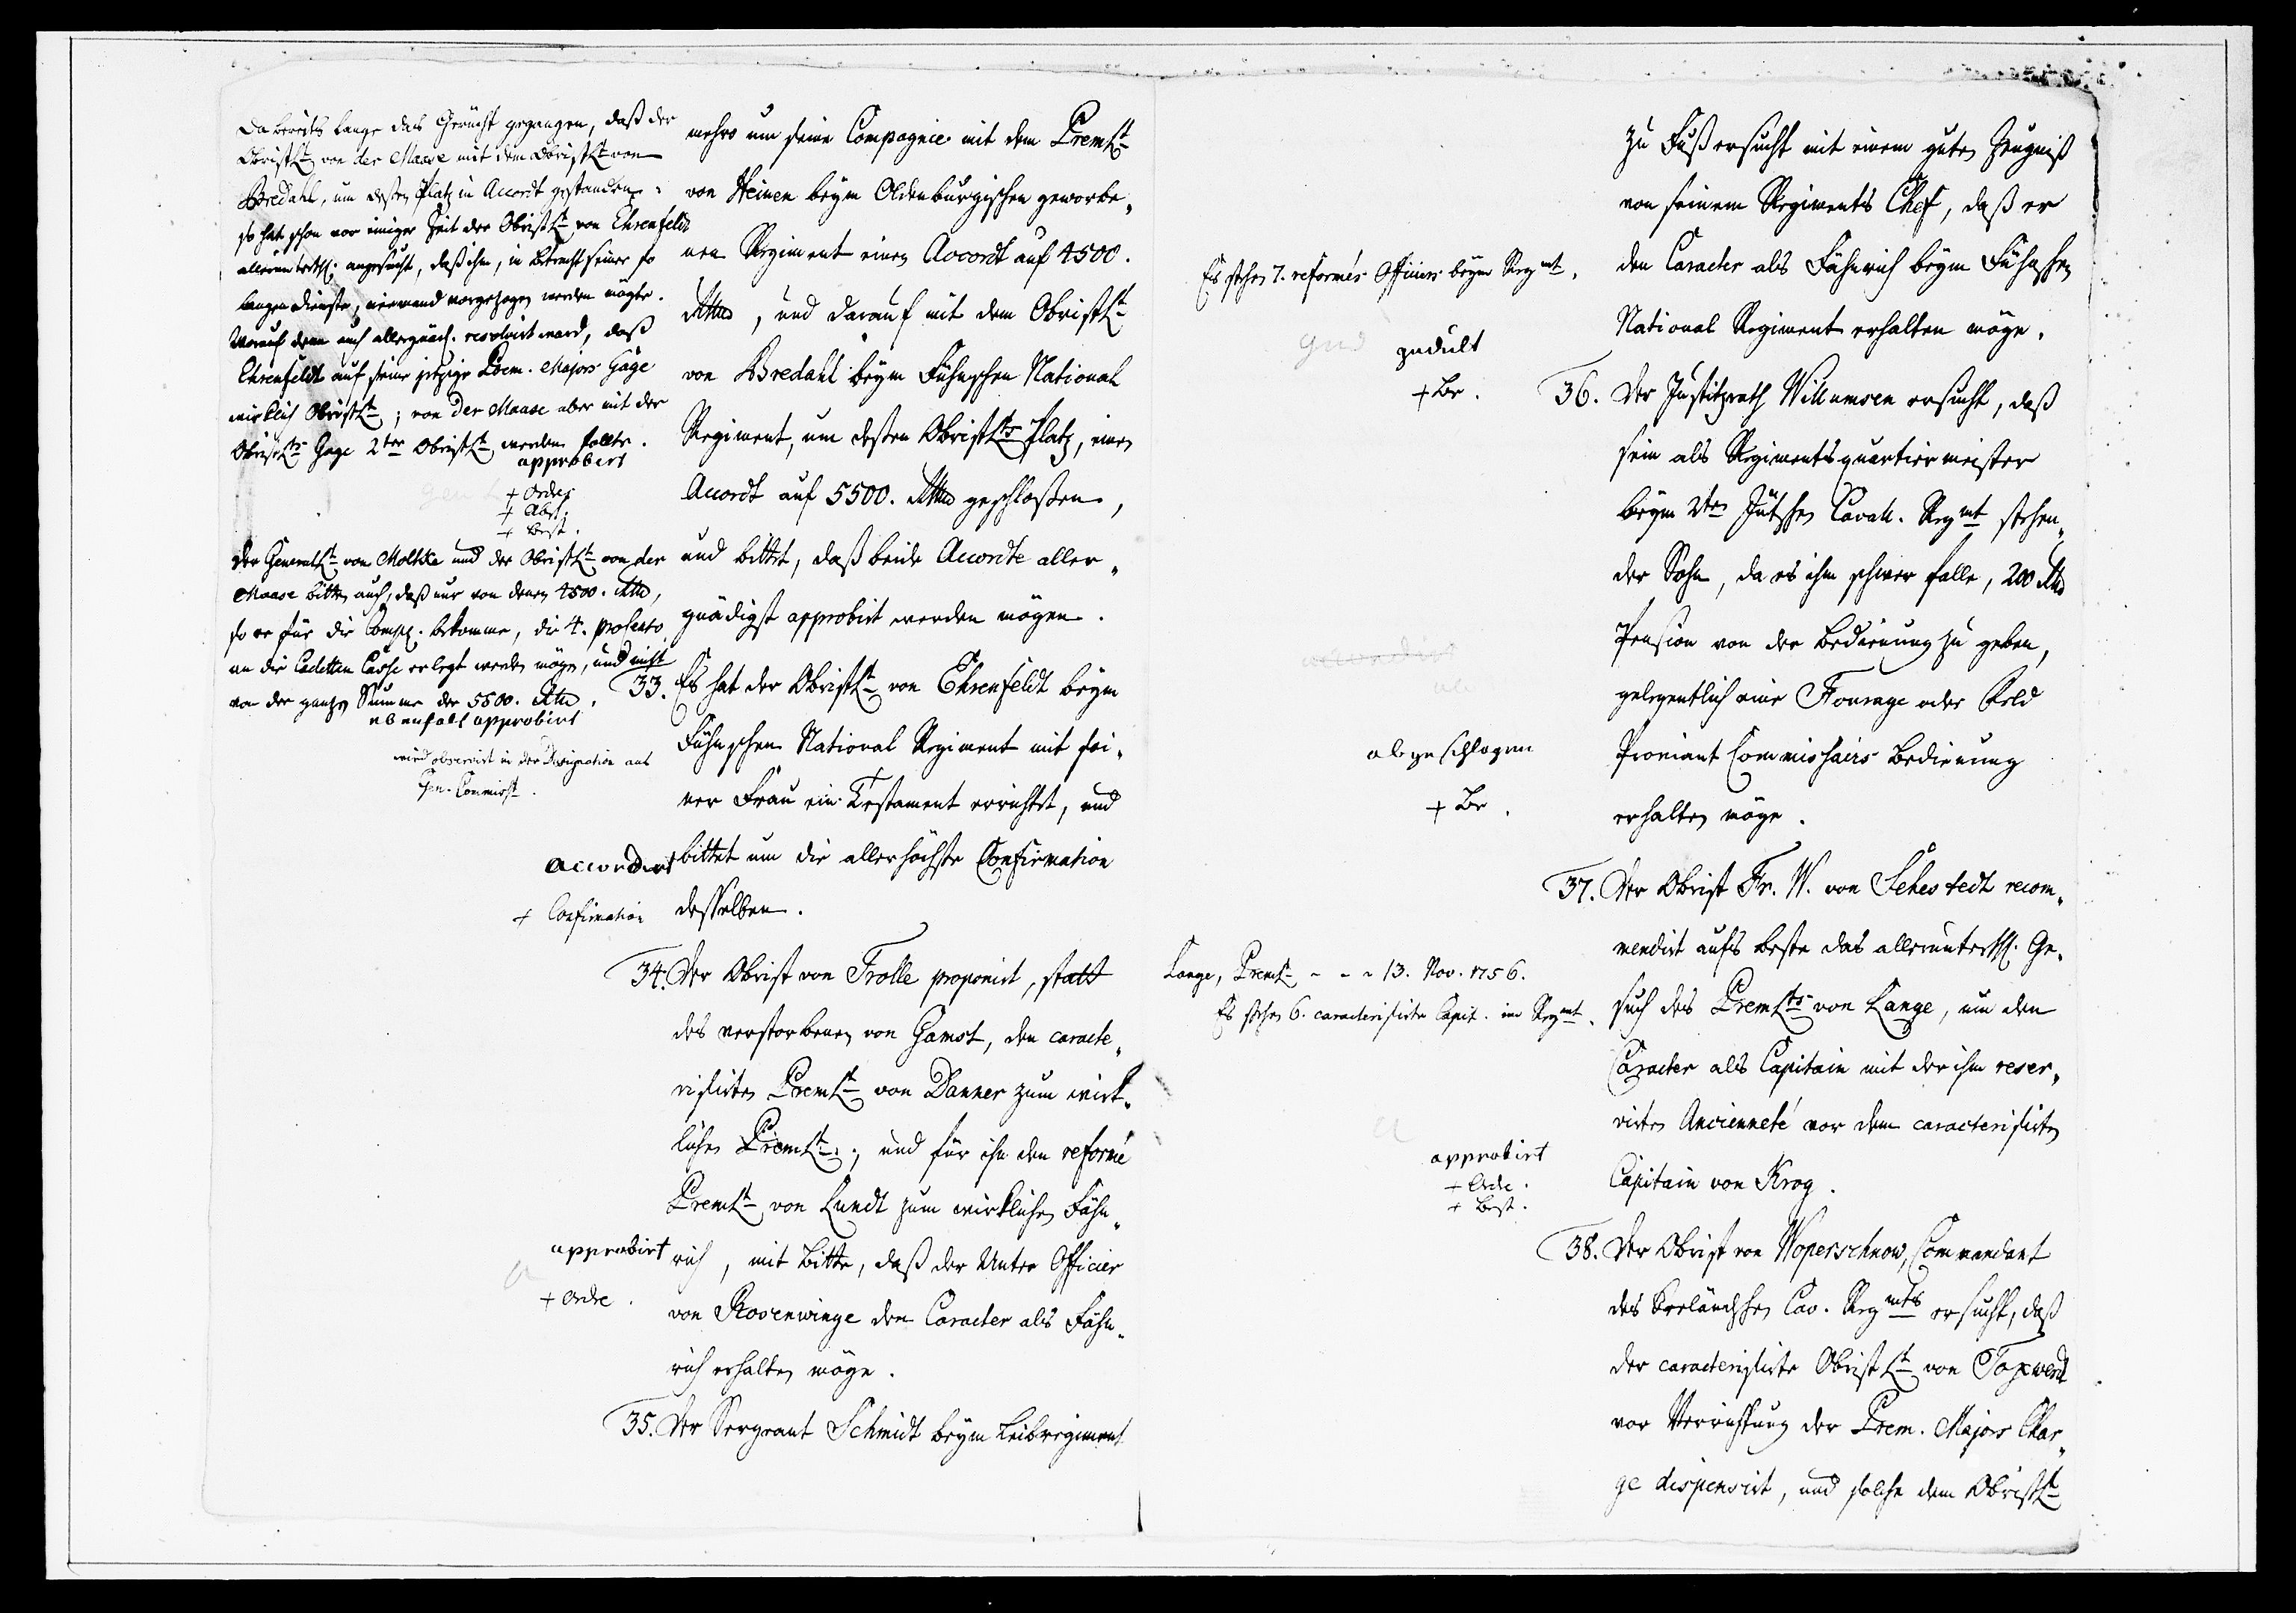 Da bereits lange das Gerücht gegangen, daß der
ObristLt von der Maase mit dem ObristLt von
Bredahl, um deßen Platz in Accordt gestanden:
so hat schon vor einiger Zeit der ObristLt von Ehrenfeldt
allerunterth: angesucht, daß ihm, in Betracht seiner so
langen Dienste, niemand vorgezogen werden mögte.
Worauf denn auch allergnäd. resolvirt ward, daß
Ehrenfeldt auf seine jetzige Prem. Majors Gage
wirklich ObristLt; von der Maase aber mit der
ObristLts Gage 2ter ObristLt werden sollte.
approbirt
+ Ordr.
+ Absch.
+ Best.
Der GeneralLt von Moltke und der ObristLt von der
Maase bitten auch, daß nur von denen 4500. Rthlr,
so er für die Comp. bekomme, die 4. procento
an die Cadetten Casse erlegt werden mögen, und nicht
von der gantzen Summe der 5500. Rthlr.
ebenfals approbirt
wird observirt in der Designation ans
Gen. Commiss.
mehro um seine Compagnie mit dem PremLt
von Heinen beym Oldenburgischen geworbe„
nen Regiment einen Accordt auf 4500.
Rthlr, und darauf mit dem ObristLt
von Bredahl beym Fühnschen National
Regiment, um deßen ObristLts Platz, einen
Accordt auf 5500. Rthlr geschloßen,
und bittet, daß beide Accordte aller„
gnädigst approbirt werden mögen.
33. Es hat der ObristLt von Ehrenfeldt beym
Fühnschen National Regiment mit sei„
ner Frau ein Testament errichtet, und
bittet um die allerhöchste Confirmation
desselben.
accordirt
+ Confirmation
34. Der Obrist von Trolle proponirt, statt
des verstorbenen von Gamst, den caracte„
risirten PremLt von Danner zum wirk„
lichen PremLt; und für ihn den reformé
PremLt von Lundt zum wirklichen Fähn„
rich, mit Bitte, daß der Unter Officier
von Rosenwinge den Caracter als Fähn„
rich erhalten möge.
approbirt
+ Ordre.
35. Der Sergeant Schmidt beym Leibregiment
zu Fuß ersucht mit einem guten Zeugniß
von seinem Regiments Chef, daß er
den Caracter als Fähnrich beym Fühnschen
National Regiment erhalten möge.
Es stehen 7. reformés Officiers beym Regmt.
gedult
+ Br.
36. Der Justitzrath Willumsen ersucht, daß
sein als Regimentsquartiermeister
beym 2ten Jütschen Cavall. Regmt stehen„
der Sohn, da es ihm schwer falle, 200 Rthlr
Pension von der Bedienung zu geben,
gelegentlich eine Fourage oder Feld
Proviant Commissairs Bedienung
erhalten möge.
abgeschlagen
+ Br.
37. Der Obrist Fr. W. von Sehestedt recom„
mendirt aufs beste das allerunterth. Ge„
such des PremLts von Lange, um den
Caracter als Capitain mit der ihm reser„
virten Ancienneté vor dem caracterisirten
Capitain von Krog.
Lange, PremLt - - - 13. Nov. 1756.
Es stehen 6. caracterisirte Capit. im Regmt.
approbirt
+ Ordre.
+ Best.
38. Der Obrist von Woperschnow, Commendant
des Seeländschen Cav. Regmts ersucht, daß
der caracterisirte ObristLt von Toxwerdt
vor Verrichtung der Prem. Majors Char„
ge dispensirt, und solche dem ObristLt